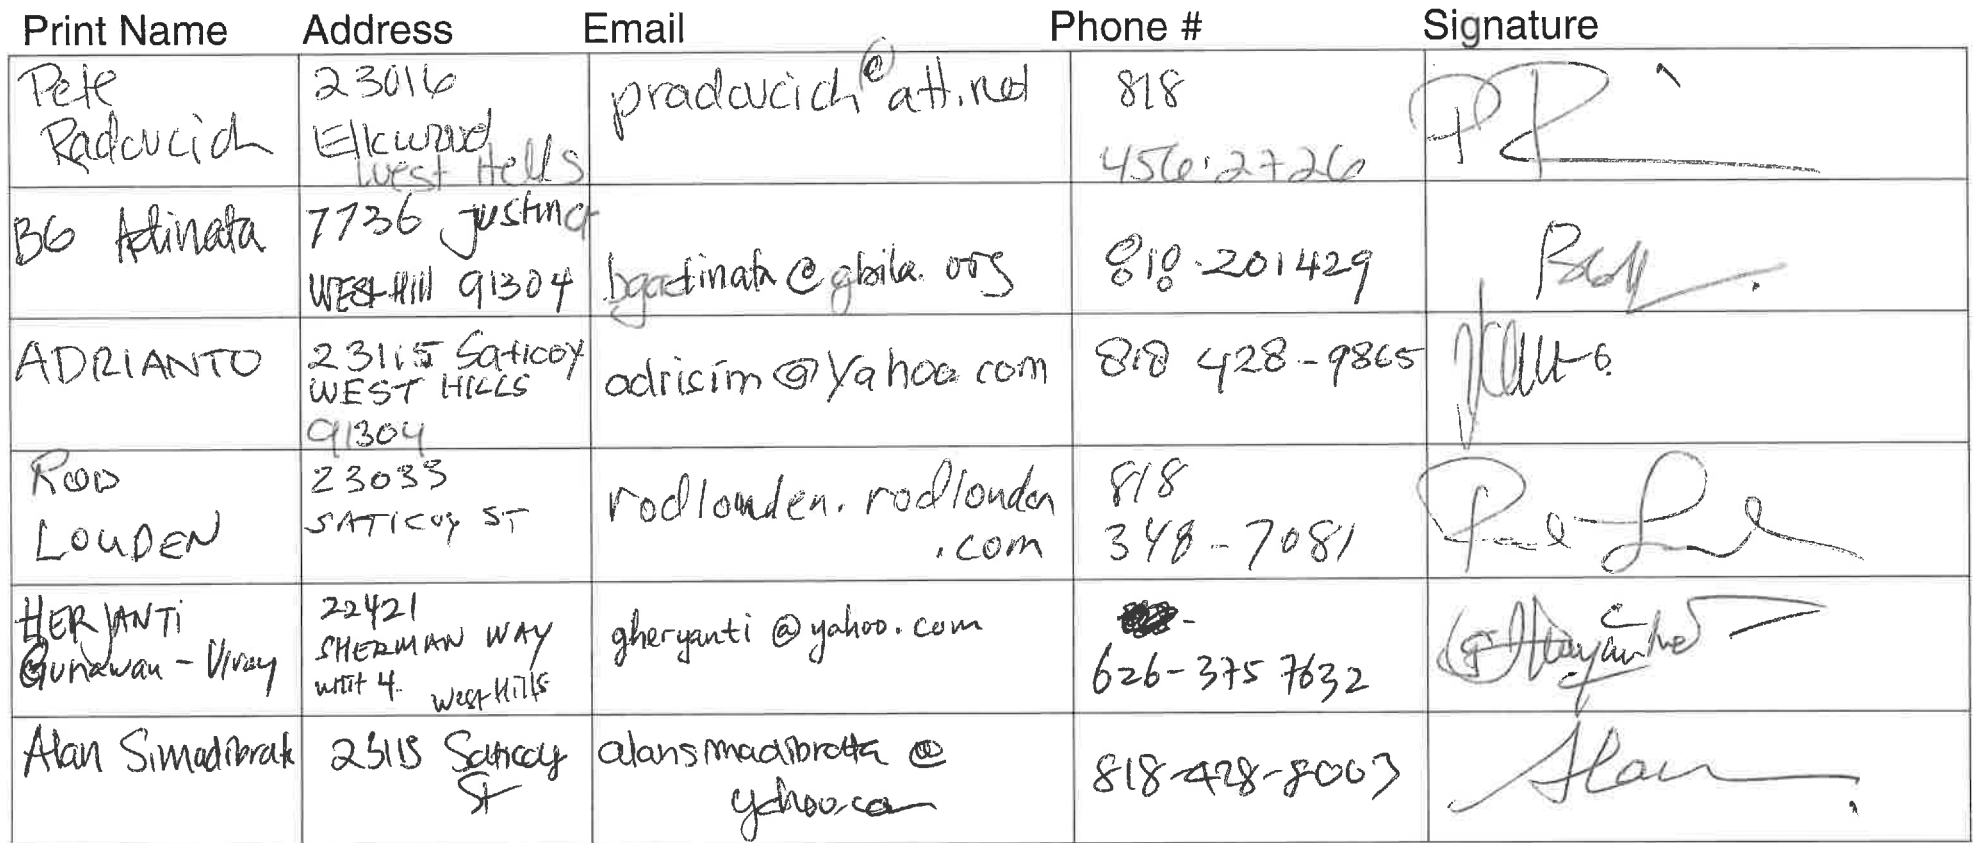 Print Name Address Email Phone # Signature
Pete
Radovcich
23016
Elkwood
West Hells
pradovcich@att.net
818
456.2726
BG Adinata
7736 Justin ct
WEST Hill 91304
bgadinata@gbila.org
818-201429
ADRIANTO
23115 Saticoy
WEST HILLS
91304
adrisim@Yahoo com
818 428-9865
ROD
LOUDEN
23033
SATICOY ST
rodlouden. rodlouden
.com
818
348-7081
HERYANTi
Gunawan - Viray
22421
SHERMAN WAY
unit 4. West Hills
gheryanti @yahoo.com
626-375 7632
Alan Simadibrat
23115 Saticoy
St
alansmadibrata @
yahoo.com
818-428-8003
Alan